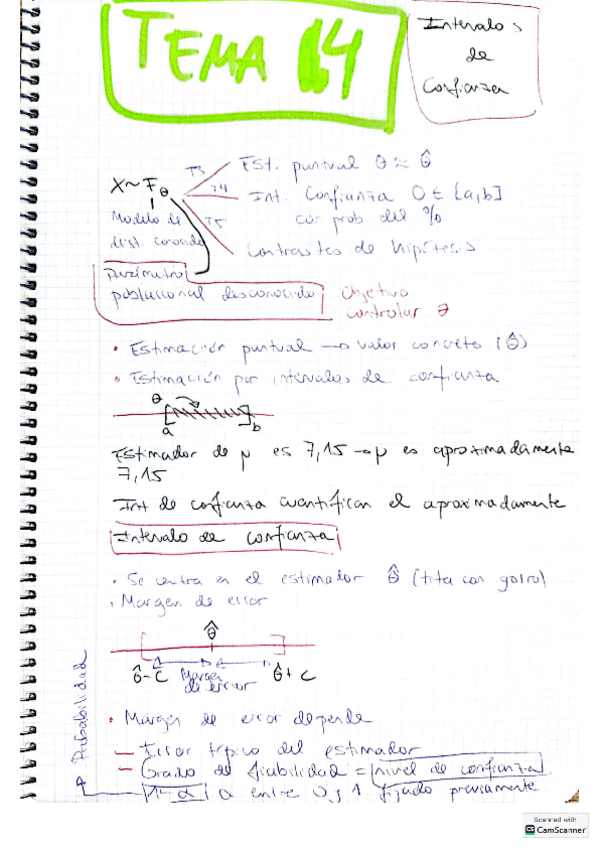 TEMA 4
Intervalos
de
Confianza
X~Fθ
T3
Est. puntual θ ≈ θ̂
T4
Int. Confianza θ ∈ [a,b]
con prob del %
T5
Contrastes de hipótesis
Modelo de
dist. conocido
parámetro
poblacional desconocido
Objetivo
controlar θ
• Estimación puntual → valor concreto (θ̂)
• Estimación por intervalos de confianza
θ
a b
Estimador de μ es 7,15 → μ es aproximadamente
7,15
Int de confianza cuantifican el aproximadamente
Intervalo de confianza
• Se centra en el estimador θ̂ (tita con gorro)
• Margen de error
θ̂
θ̂ - C Margen de error θ̂ + C
• Margen de error depende
— Error típico del estimador
— Grado de fiabilidad = nivel de confianza
1-α α entre 0 y 1 fijado previamente
Probabilidad
Scanned with
CS CamScanner